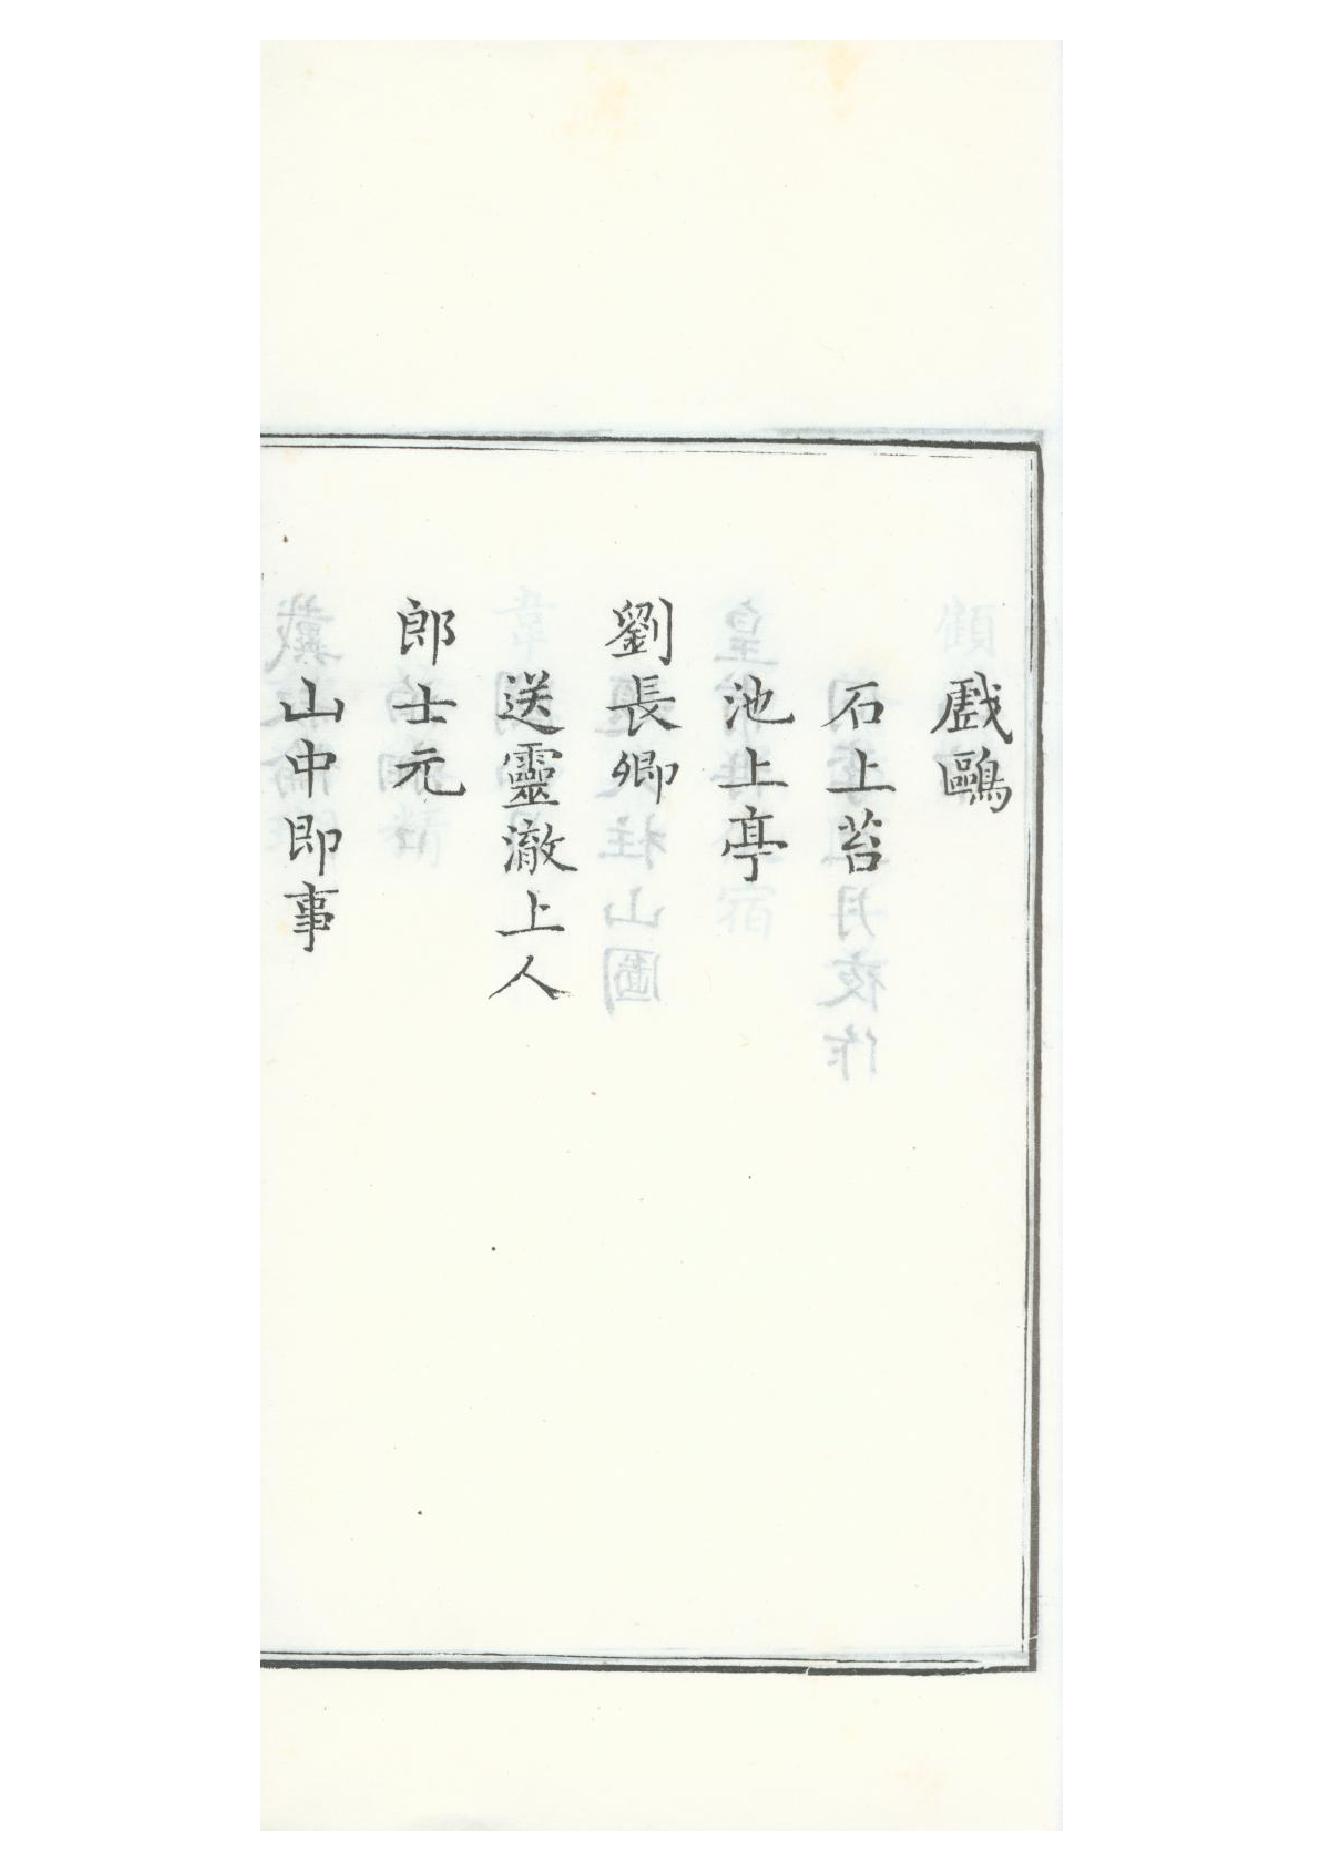 戲鷗
石上苔
池上亭
劉長卿
送靈澈上人
郎士元
山中即事